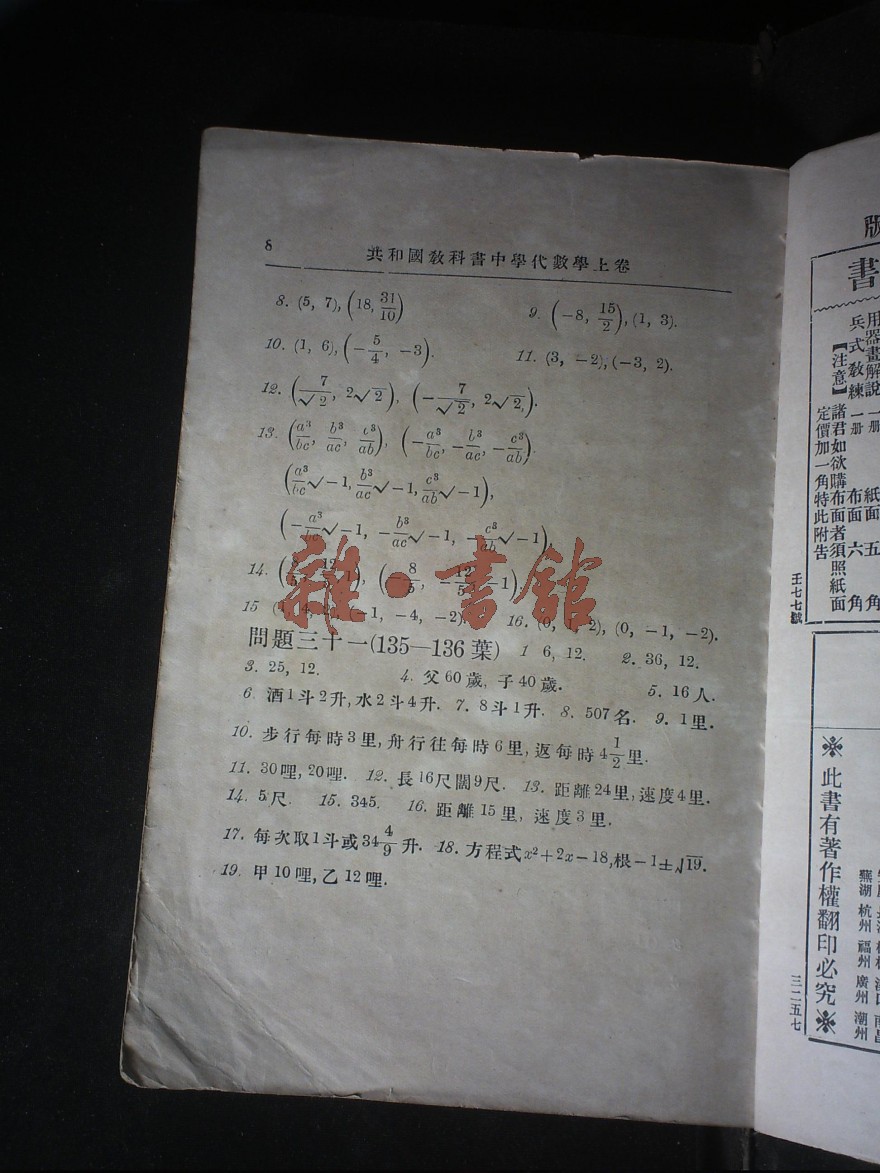 8 共和國敎科書中學代數學上卷
8. (5, 7), (18, 31/10) 9. (−8, 15/2), (1, 3).
10. (1, 6), (−5/4, −3). 11. (3, −2), (−3, 2).
12. (7/√2, 2√2), (−7/√2, 2√2).
13. (a³/bc, b³/ac, c³/ab), (−a³/bc, −b³/ac, −c³/ab).
(a³/bc √−1, b³/ac √−1, c³/ab √−1),
(−a³/bc √−1, −b³/ac √−1, −c³/ab √−1),
14. (−8/5,
15 −1, −4, −2). 16. (0, 1, 2), (0, −1, −2).
問題三十一(135—136葉) 1 6, 12. 2. 36, 12.
3. 25, 12. 4. 父60歲, 子40歲. 5. 16人.
6. 酒1斗2升, 水2斗4升. 7. 8斗1升. 8. 507名. 9. 1里.
10. 步行每時3里, 舟行往每時6里, 返每時4 1/2里.
11. 30哩, 20哩. 12. 長16尺闊9尺. 13. 距離24里, 速度4里.
14. 5尺. 15. 345. 16. 距離15里, 速度3里.
17. 每次取1斗或34 4/9升. 18. 方程式x²+2x−18, 根−1±√19.
19. 甲10哩, 乙12哩.
雜·書館
版
書
用器畫解說 一册 紙面 五角
兵式敎練 一册 布面 六角
【注意】諸君如欲購布面者須照紙面
定價加一角特此附告
壬七七號
※此書有著作權翻印必究※
蕪湖 杭州 福州 廣州 潮州
三二五七